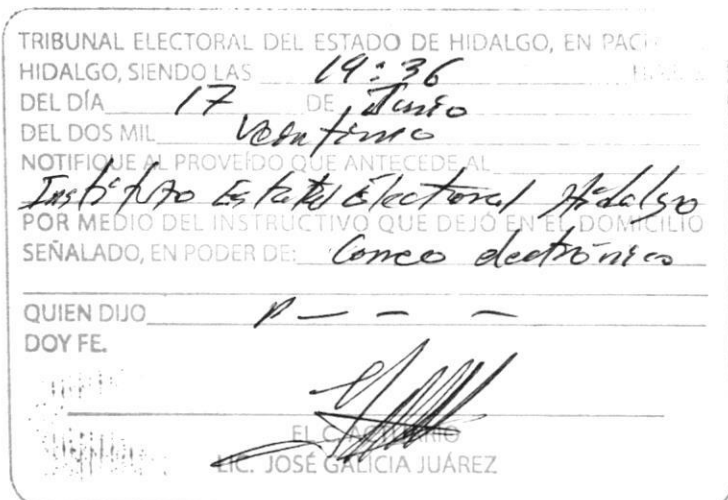 TRIBUNAL ELECTORAL DEL ESTADO DE HIDALGO, EN
HIDALGO, SIENDO LAS 19:36
DEL DÍA 17 DE Junio
DEL DOS MIL Veintiuno
NOTIFIQUE AL PROVEÍDO QUE ANTECEDE AL
Instituto Estatal Electoral Hidalgo
POR MEDIO DEL INSTRUCTIVO QUE DEJÓ EN EL DOMICILIO
SEÑALADO, EN PODER DE: Correo electrónico
QUIEN DIJO
DOY FE.
EL C. ACTUARIO
LIC. JOSÉ GALICIA JUÁREZ